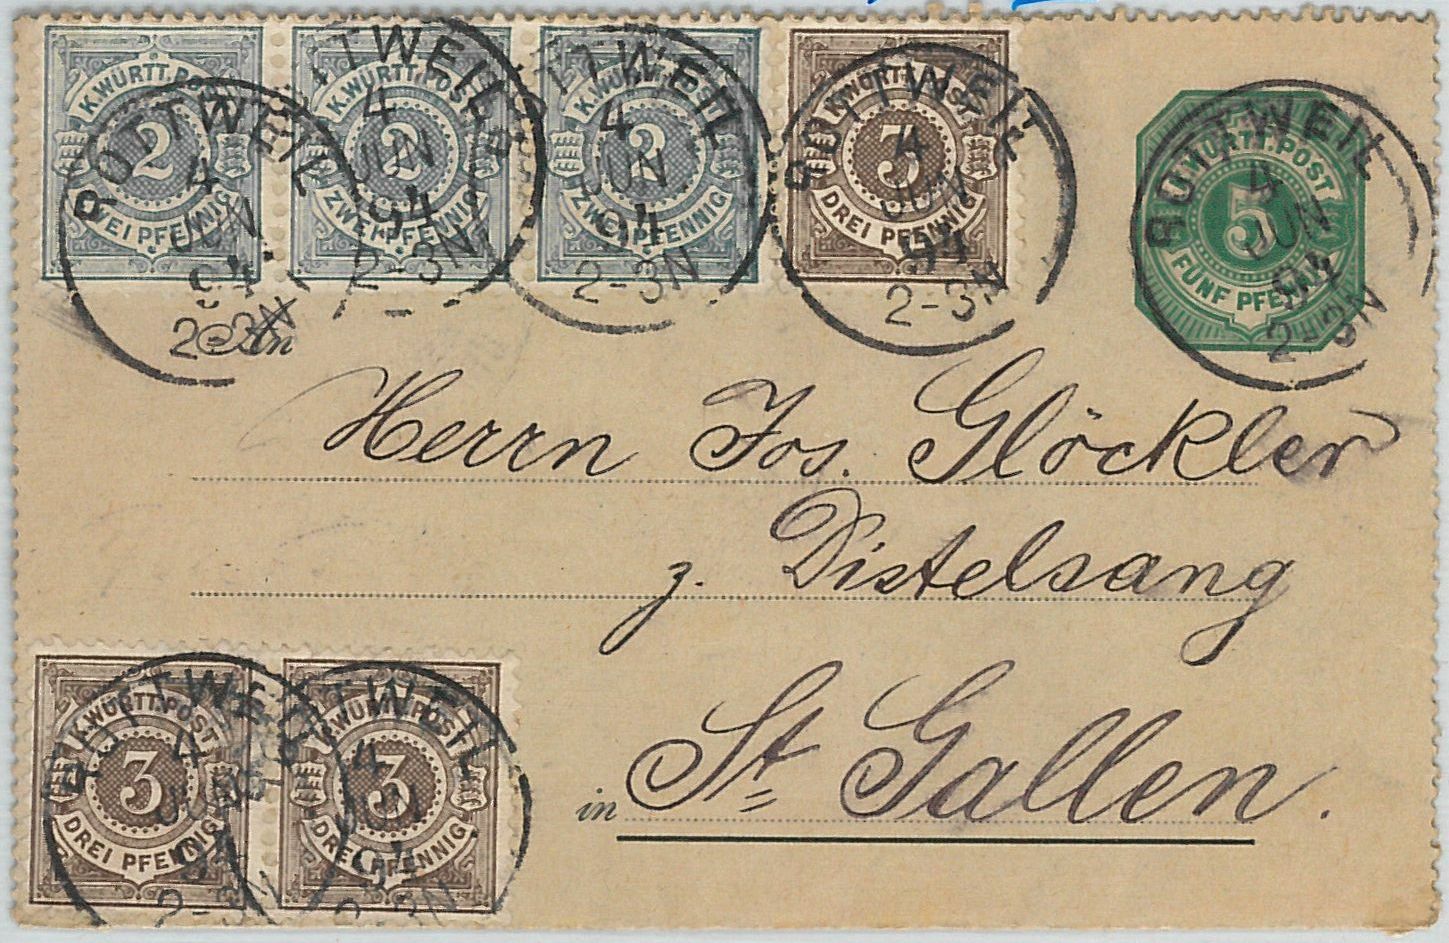 K.WÜRTT.POST
2
ZWEI PFENNIG
ROTTWEIL
4
JUN
94
2-3N
K.WÜRTT.POST
2
ZWEI PFENNIG
ROTTWEIL
4
JUN
94
2-3N
K.WÜRTT.POST
2
ZWEI PFENNIG
ROTTWEIL
4
JUN
94
2-3N
K.WÜRTT.POST
3
DREI PFENNIG
ROTTWEIL
4
JUN
94
2-3N
K.WÜRTT.POST
5
FÜNF PFENNIG
ROTTWEIL
4
JUN
94
2-3N
An
Herrn Jos. Glöckler
z. Distelsang
in St Gallen.
K.WÜRTT.POST
3
DREI PFENNIG
ROTTWEIL
4
JUN
94
2-3N
K.WÜRTT.POST
3
DREI PFENNIG
ROTTWEIL
4
JUN
94
2-3N